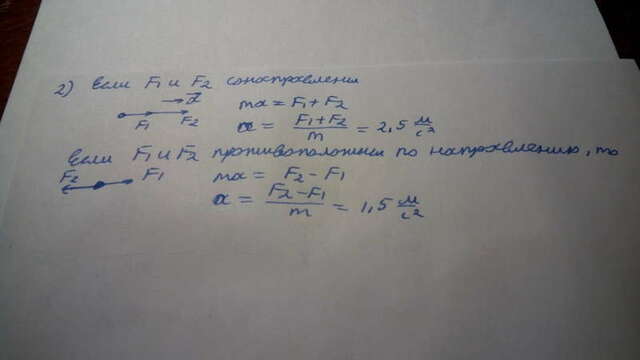 2) Если F1 и F2 сонаправлены
→ a⃗
F1 F2
ma = F1 + F2
a = F1+F2 / m = 2,5 м/с²
Если F1 и F2 противоположны по направлению, то
F2 F1
ma = F2 - F1
a = F2-F1 / m = 1,5 м/с²